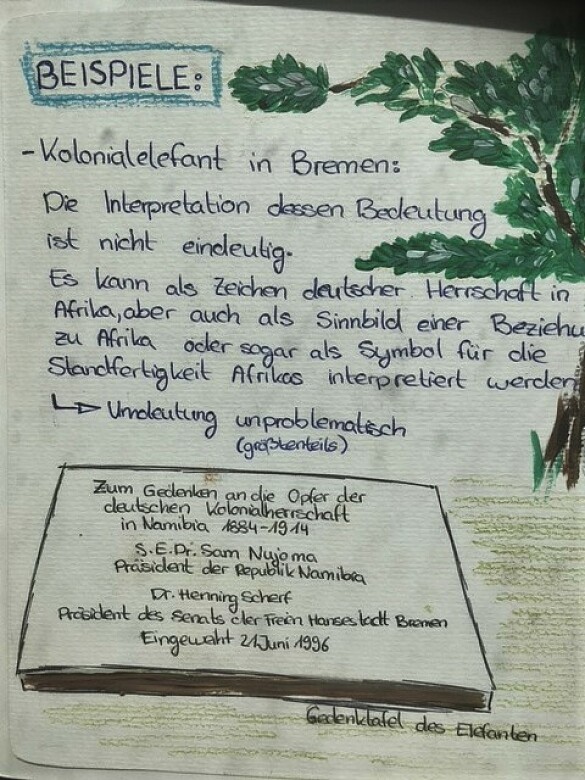 BEISPIELE:
- Kolonialelefant in Bremen:
Die Interpretation dessen Bedeutung
ist nicht eindeutig.
Es kann als Zeichen deutscher Herrschaft in
Afrika, aber auch als Sinnbild einer Beziehu
zu Afrika oder sogar als Symbol für die
Standfertigkeit Afrikas interpretiert werden
↳ Umdeutung unproblematisch
(größtenteils)
Zum Gedenken an die Opfer der
deutschen Kolonialherrschaft
in Namibia 1884-1914
S.E.Dr. Sam Nujoma
Präsident der Republik Namibia
Dr. Henning Scherf
Präsident des Senats der Frein Hansestadt Bremen
Eingeweht 21 Juni 1996
Gedenktafel des Elefanten